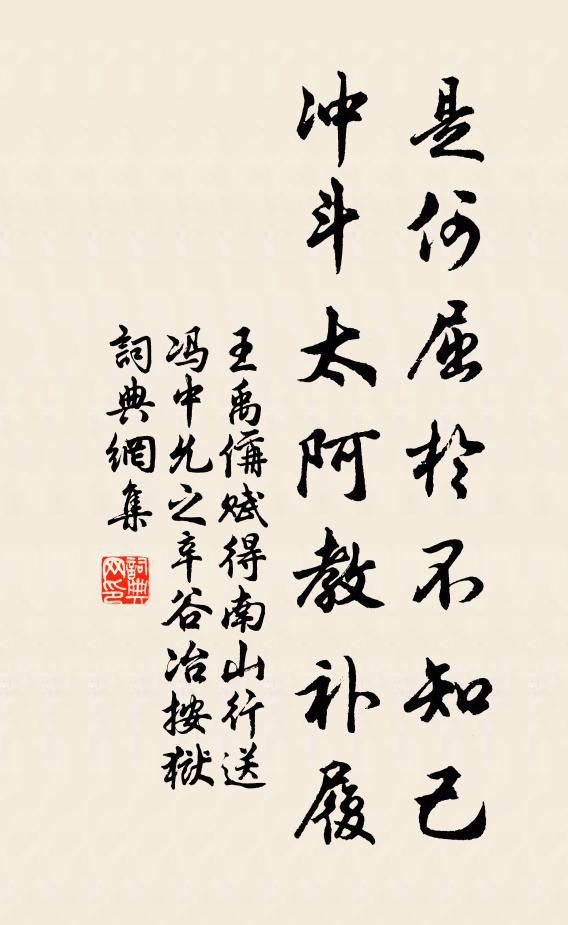 是何屈於不知己
冲斗太阿教补履
王禹偁赋得南山行送
冯中允之辛谷冶按獄
詞典網集
詞典网印